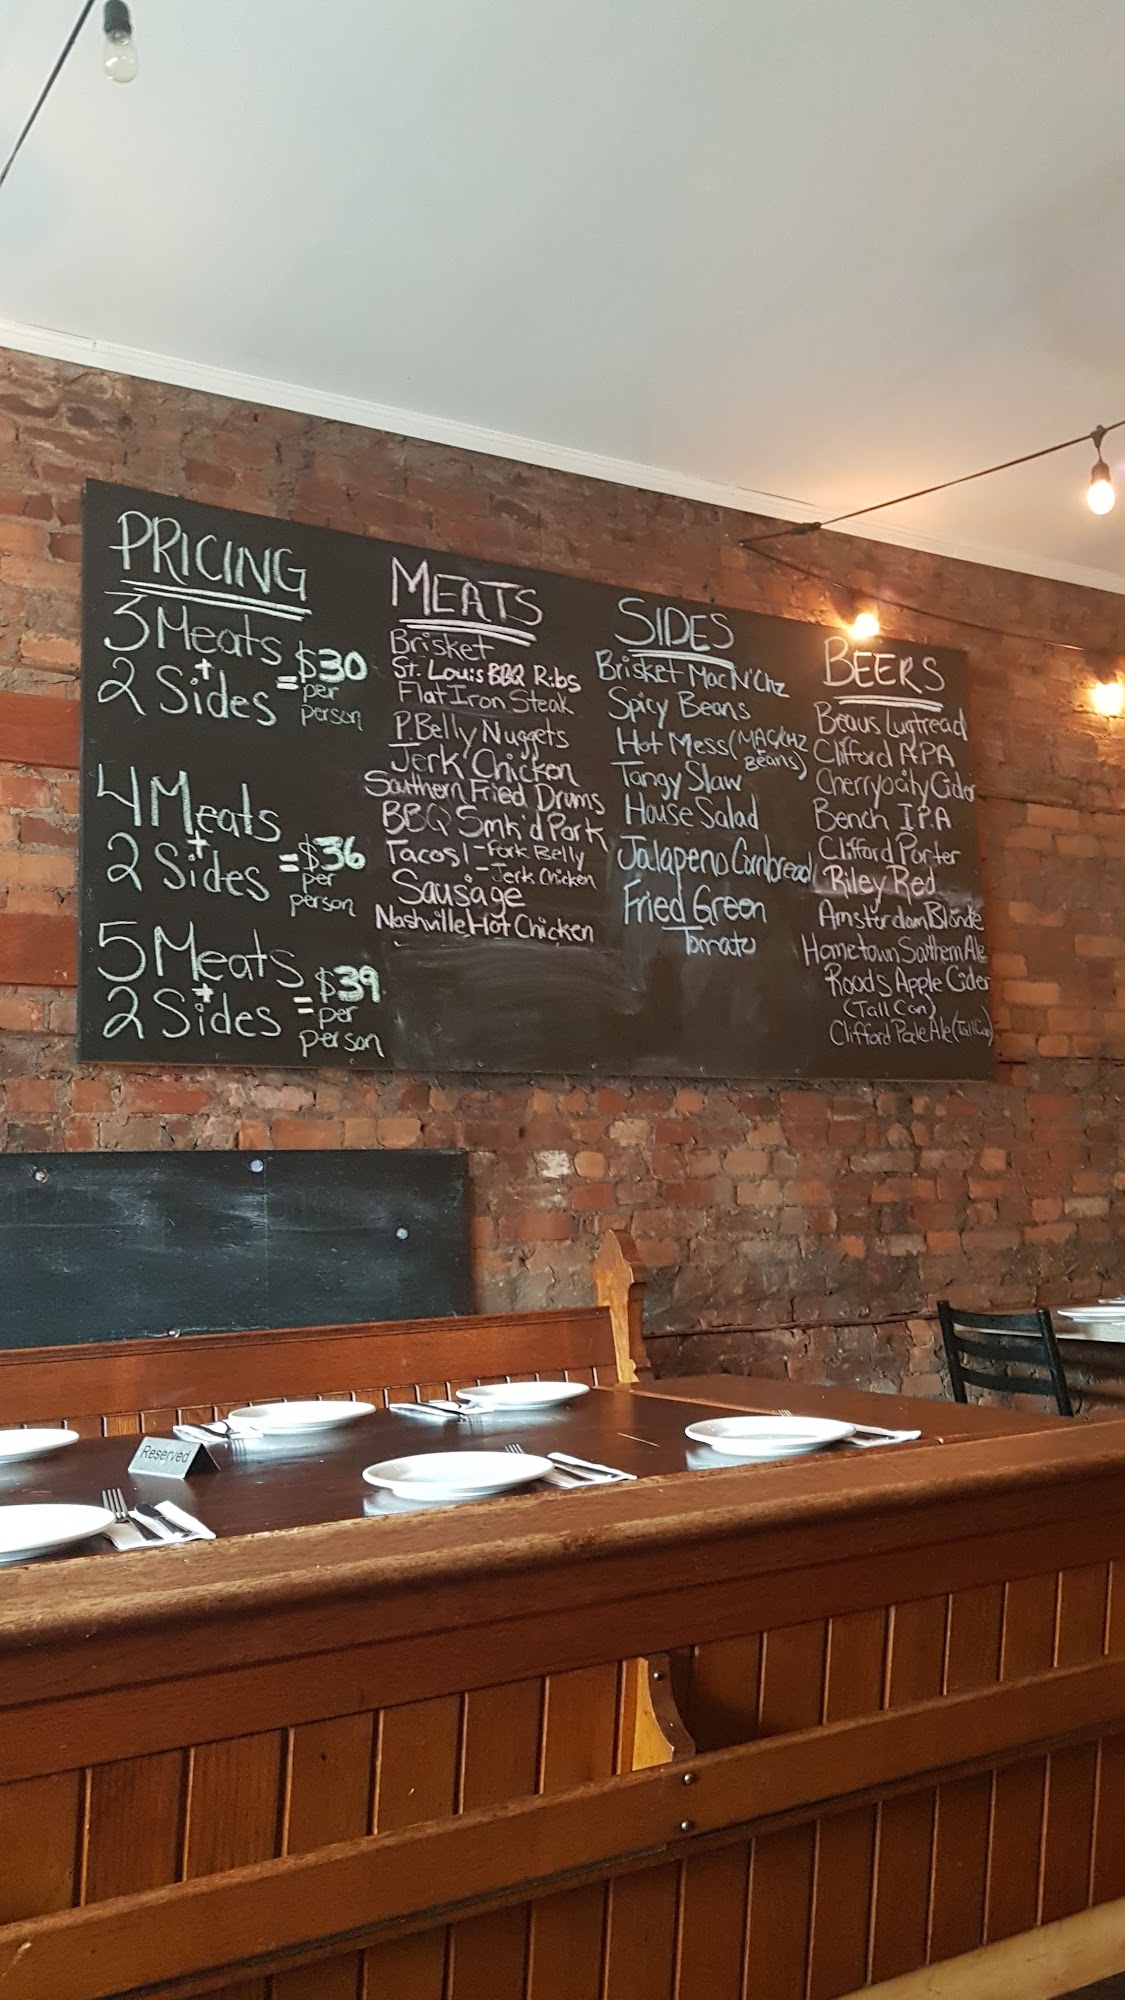 PRICING
3 Meats
+
2 Sides = $30
per
person
4 Meats
+
2 Sides = $36
per
person
5 Meats
+
2 Sides = $39
per
person
MEATS
Brisket
St. Louis BBQ Ribs
Flat Iron Steak
P. Belly Nuggets
Jerk Chicken
Southern Fried Drums
BBQ Smk'd Pork
Tacos - Pork Belly
- Jerk Chicken
Sausage
Nashville Hot Chicken
SIDES
Brisket Mac N' Chz
Spicy Beans
Hot Mess (MAC/CHZ
Beans)
Tangy Slaw
House Salad
Jalapeno Cornbread
Fried Green
Tomato
BEERS
Beaus Lugtread
Clifford APA
Cherryocity Cider
Bench I.P.A
Clifford Porter
Riley Red
Amsterdam Blonde
Hometown Southern Ale
Roods Apple Cider
(Tall Can)
Clifford Pale Ale (Tall Can)
Reserved